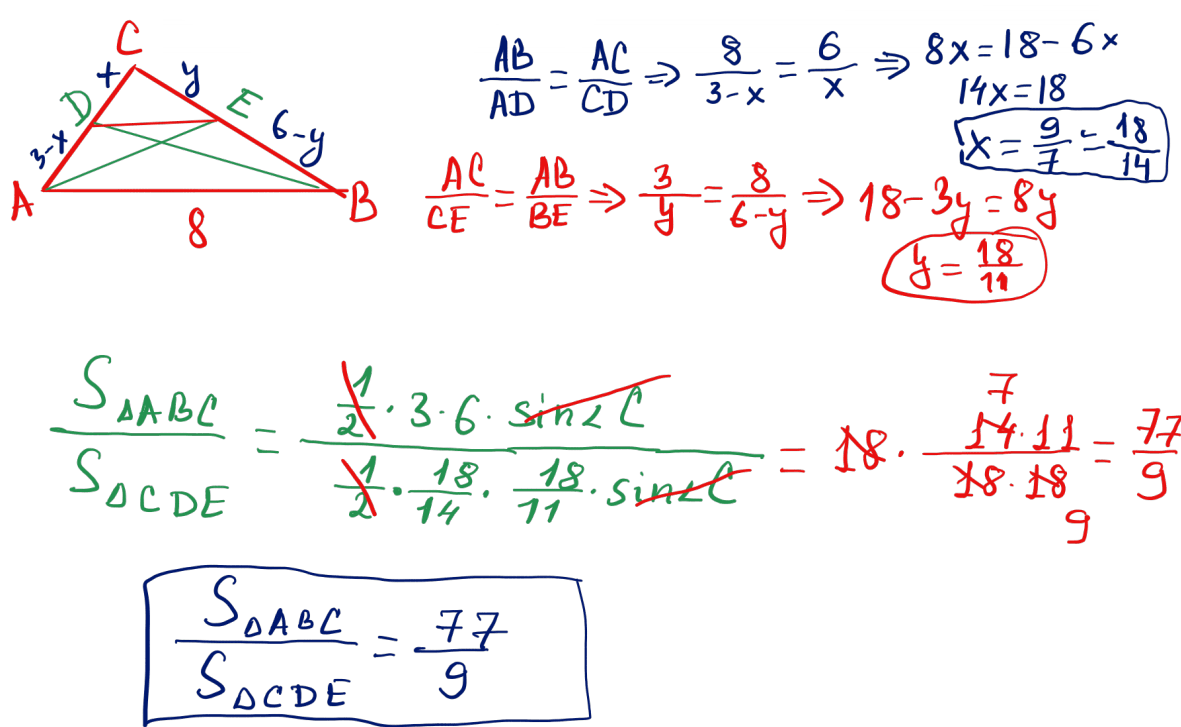 C
+ y
D E
3-x 6-y
A B
8
AB/AD = AC/CD ⇒ 8/(3-x) = 6/x ⇒ 8x=18-6x
14x=18
x = 9/7 = 18/14
AC/CE = AB/BE ⇒ 3/y = 8/(6-y) ⇒ 18-3y=8y
y = 18/11
S△ABC/S△CDE = (1/2 · 3 · 6 · sin∠C)/(1/2 · 18/14 · 18/11 · sin∠C) = 18 · (14·11)/(18·18) = 77/9
7
9
S△ABC/S△CDE = 77/9